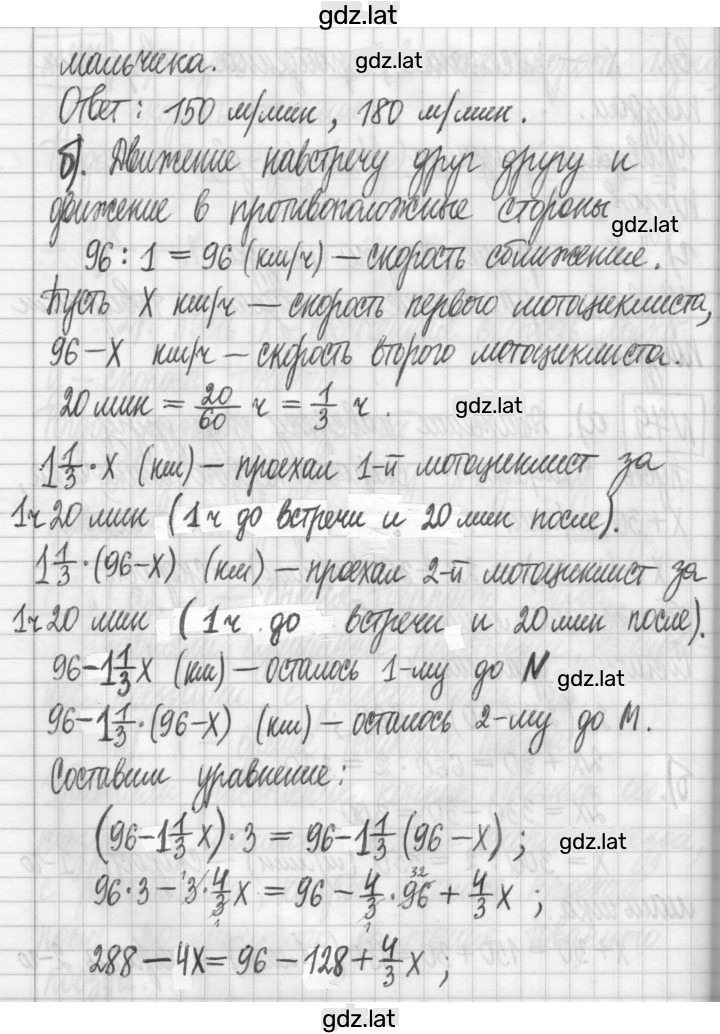 gdz.lat
мальчика.
gdz.lat
Ответ: 150 м/мин, 180 м/мин.
б). Движение навстречу друг другу и
движение в противоположные стороны
gdz.lat
96 : 1 = 96 (км/ч) — скорость сближение.
Пусть X км/ч — скорость первого мотоциклиста,
96 – X км/ч – скорость второго мотоциклиста.
20 мин = 20/60 ч = 1/3 ч.
gdz.lat
1 1/3 · X (км) – проехал 1-й мотоциклист за
1ч 20 мин (1 ч до встречи и 20 мин после).
1 1/3 · (96-X) (км) – проехал 2-й мотоциклист за
1ч 20 мин (1ч до встречи и 20 мин после).
96 – 1 1/3 X (км) – осталось 1-му до N
gdz.lat
96 – 1 1/3 · (96-X) (км) – осталось 2-му до M.
Составим уравнение:
(96 – 1 1/3 X) · 3 = 96 – 1 1/3 (96 – X) ;
gdz.lat
96 · 3 – 3 · 4/3 X = 96 – 4/3 · 96 + 4/3 X ;
288 – 4X = 96 – 128 + 4/3 X ;
gdz.lat